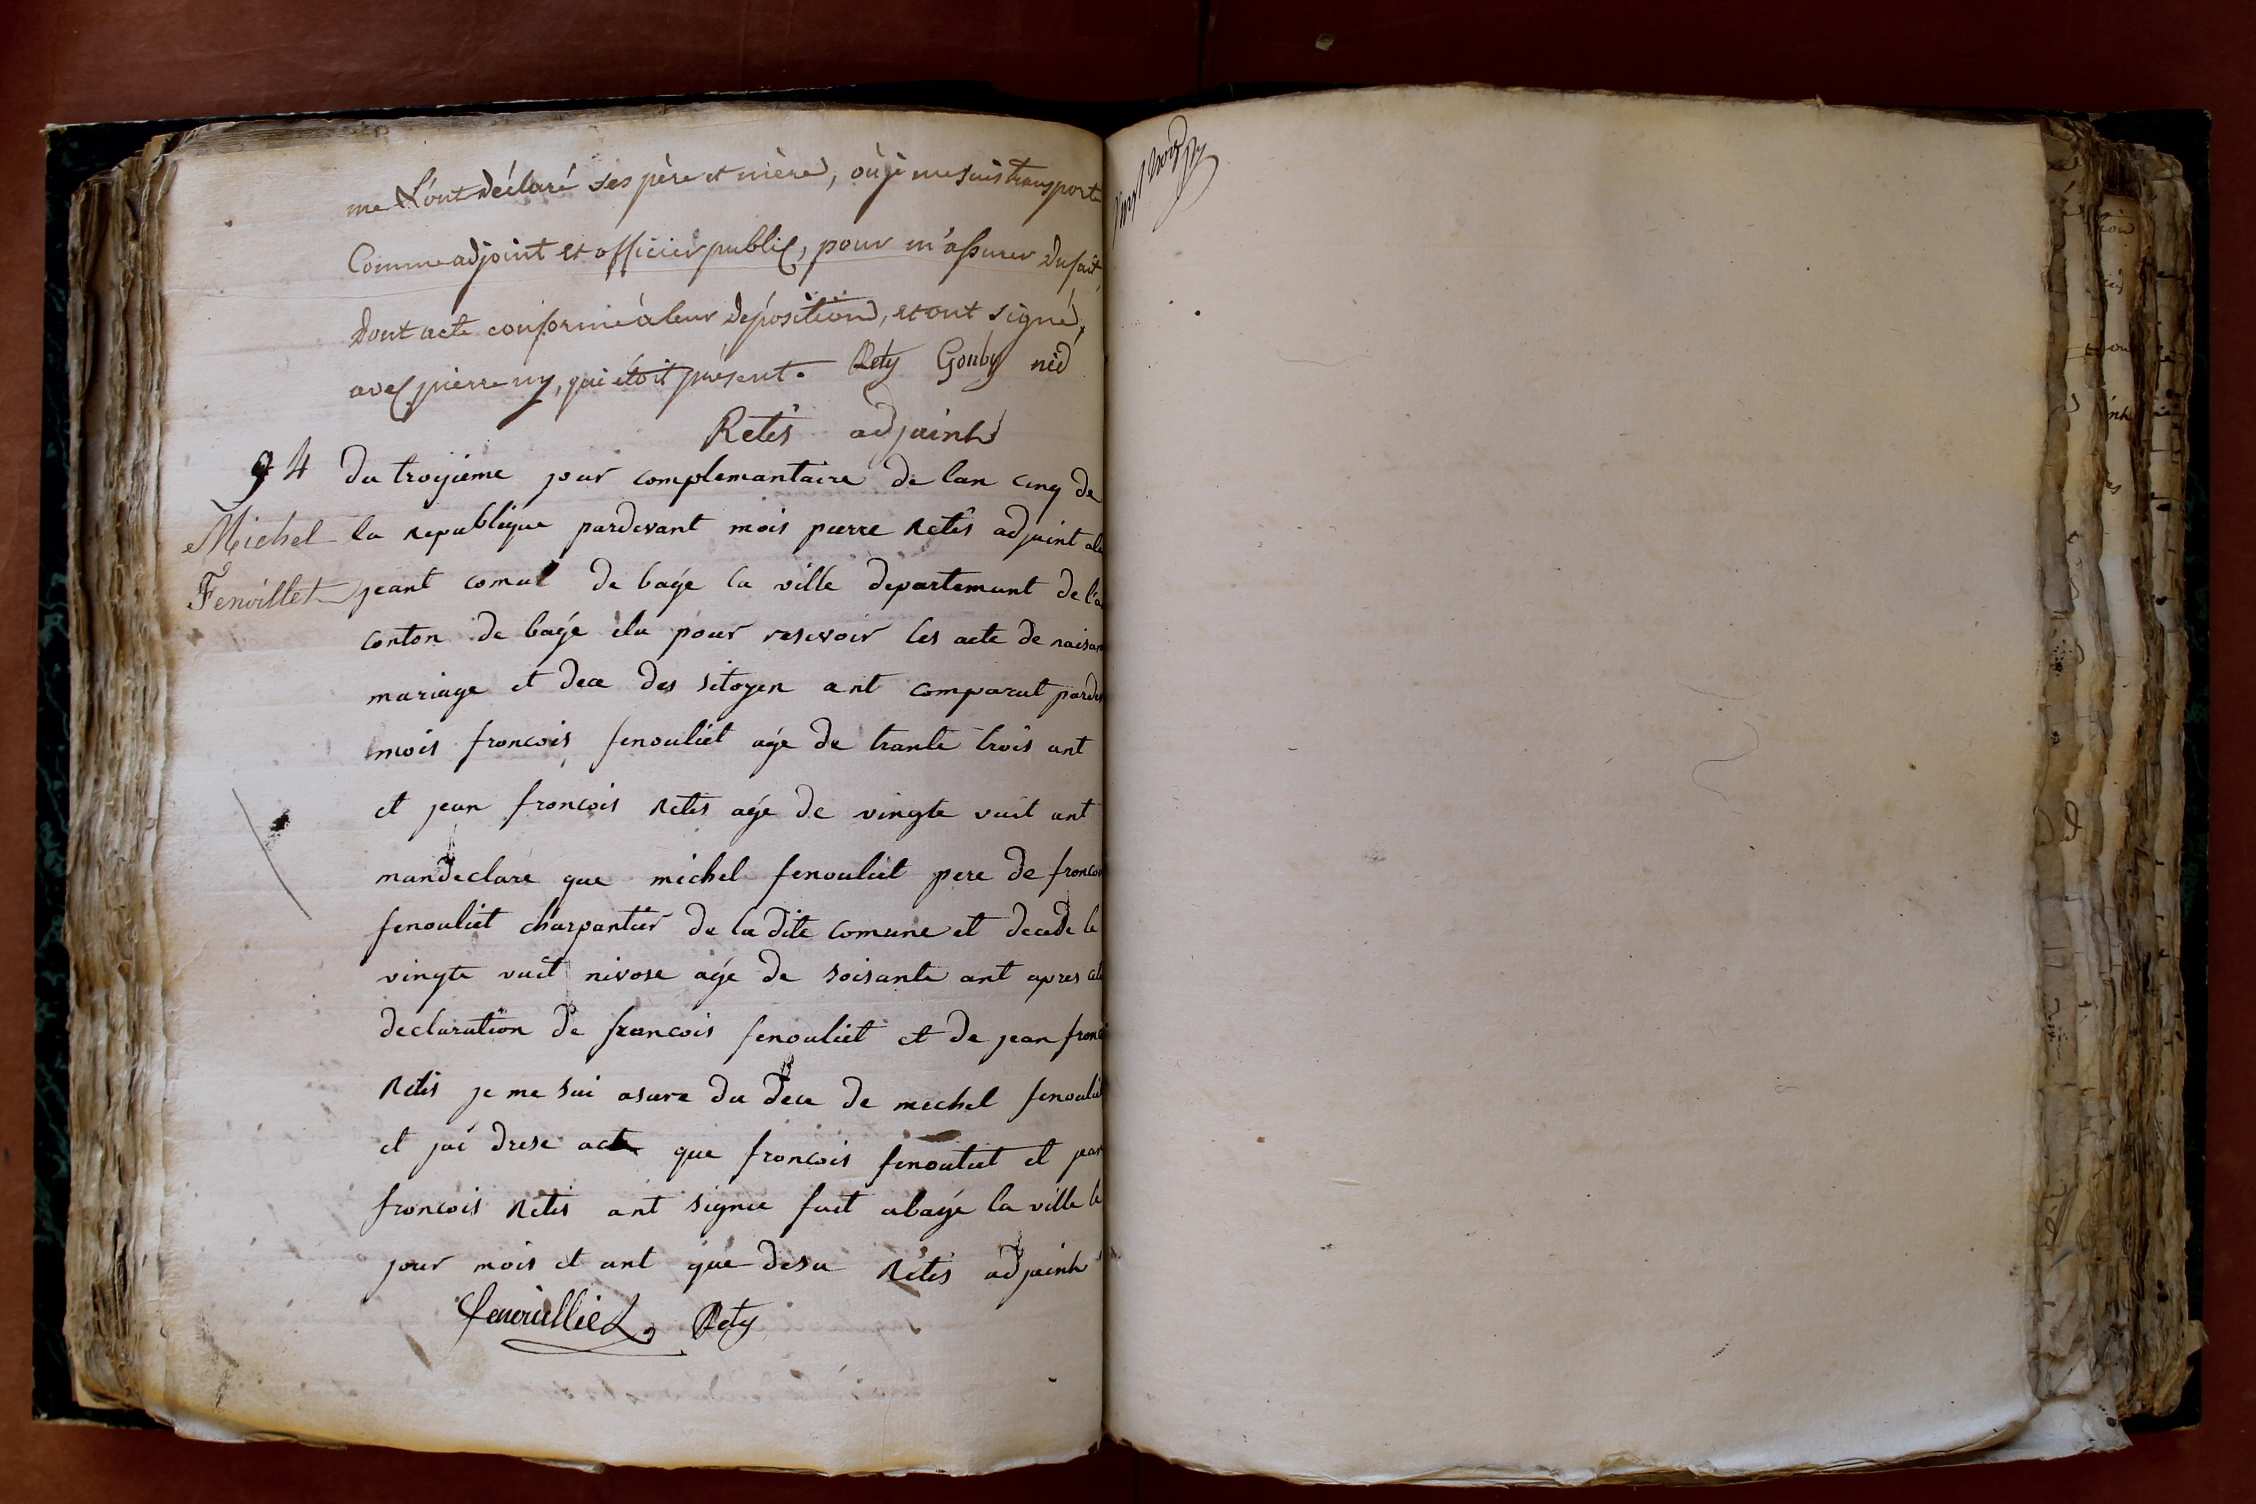 me L'ont déclaré ses père et mère, où je me suis transporté
Comme adjoint et officier public, pour m'assurer du fait,
Dont acte conforme à leur déposition, et ont signé,
avec pierre ny, qui étoit présent. Rety Gouby nid
Retis adjainh
94 du troisieme jour complemantaire de lan cinq de
Michel la republique pardevant mois pierre Retis adjaint ale
Fenoillet jeant comul de bagé la ville departemant de l'a
conton de bagé elu pour resevoir les acte de naisan
mariage et dece des sitoyen ant comparut parde
mois froncois fenouliet age de trante trois ant
et jean froncois Retis age de vingte vuit ant
mandeclare que michel fenouliet pere de froncoi
fenouliet charpantier de la dite comune et decede le
vingte vuit nivose age de soisante ant apres cete
declaration de francois fenouliet et de jean fronc
Retis je me sui asure du dece de mechel fenouliet
et jai drese acte que froncois fenouliet et jean
froncois Retis ant signie fait abagé la ville le
jour mois et ant que desu Retis adjainh
fenouilliet Rety